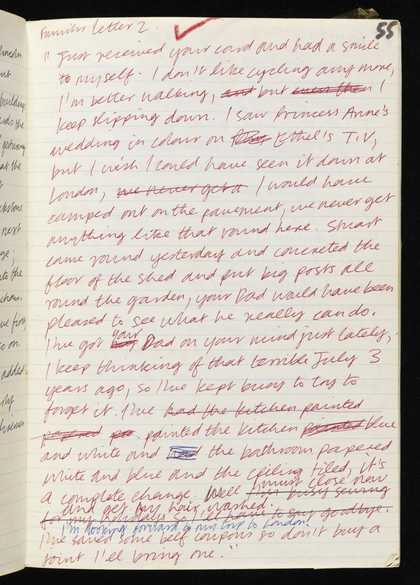 Familiar letter 2.
55
"Just received your card and had a smile
to myself. I don't like cycling any more,
I'm better walking, and but even then I
keep slipping down. I saw Princess Anne's
wedding in colour on Ethel's T.V,
but I wish I could have seen it down at
London, we never get a I would have
camped out on the pavement, we never get
anything like that round here. Stuart
came round yesterday and concreted the
floor of the shed and put big posts all
round the garden, your Dad would have been
pleased to see what he really can do.
I've got your Dad on your mind just lately,
I keep thinking of that terrible July 3
years ago, so I've kept busy to try to
forget it. I've had the kitchen painted
painted the kitchen painted blue
and white and the bathroom papered
white and blue and the ceiling tiled, it's
a complete change. Well I must close now
I'm busy sewing
and get my hair washed.
to say goodbye.
I'm looking forward to our trip to London!
I've saved some beef coupons so don't buy a
joint I'el bring one."